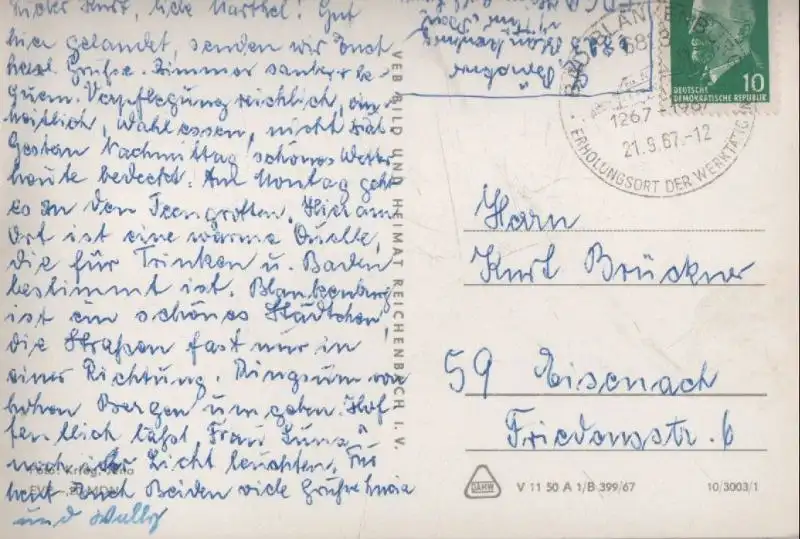 Lieber Kurt, liebe Marthel! Gut
hier gelandet, senden wir Euch
herzl. Grüße. Zimmer sauber u. be-
quem. Verpflegung reichlich, ein-
heitlich, Wahlessen, nicht
Gestern Nachmittag schönes Wetter
heute bedeckt. Am Montag geht
es zu den Feengrotten. Hier am
Ort ist eine warme Quelle,
die für Trinken u. Baden
bestimmt ist. Blankenburg
ist ein schönes Städtchen,
die Straßen fast nur in
einer Richtung. Ringsum von
hohen Bergen umgeben. Hof
fentlich läßt „Frau Luna"
noch ihr Licht leuchten. Für
heut Euch Beiden viele Grüße
und Wally
Foto: Krieg, Jena
VEB BILD UND HEIMAT REICHENBACH I. V.
BAD BLANKENBURG
1267 - 1967
21.9.67.-12
ERHOLUNGSORT DER WERKTÄTIGEN
10
DEUTSCHE
DEMOKRATISCHE REPUBLIK
Herrn
Kurt Brückner
59 Eisenach
Friedensstr. 6
DAHW
V 11 50 A 1/B 399/67
10/3003/1